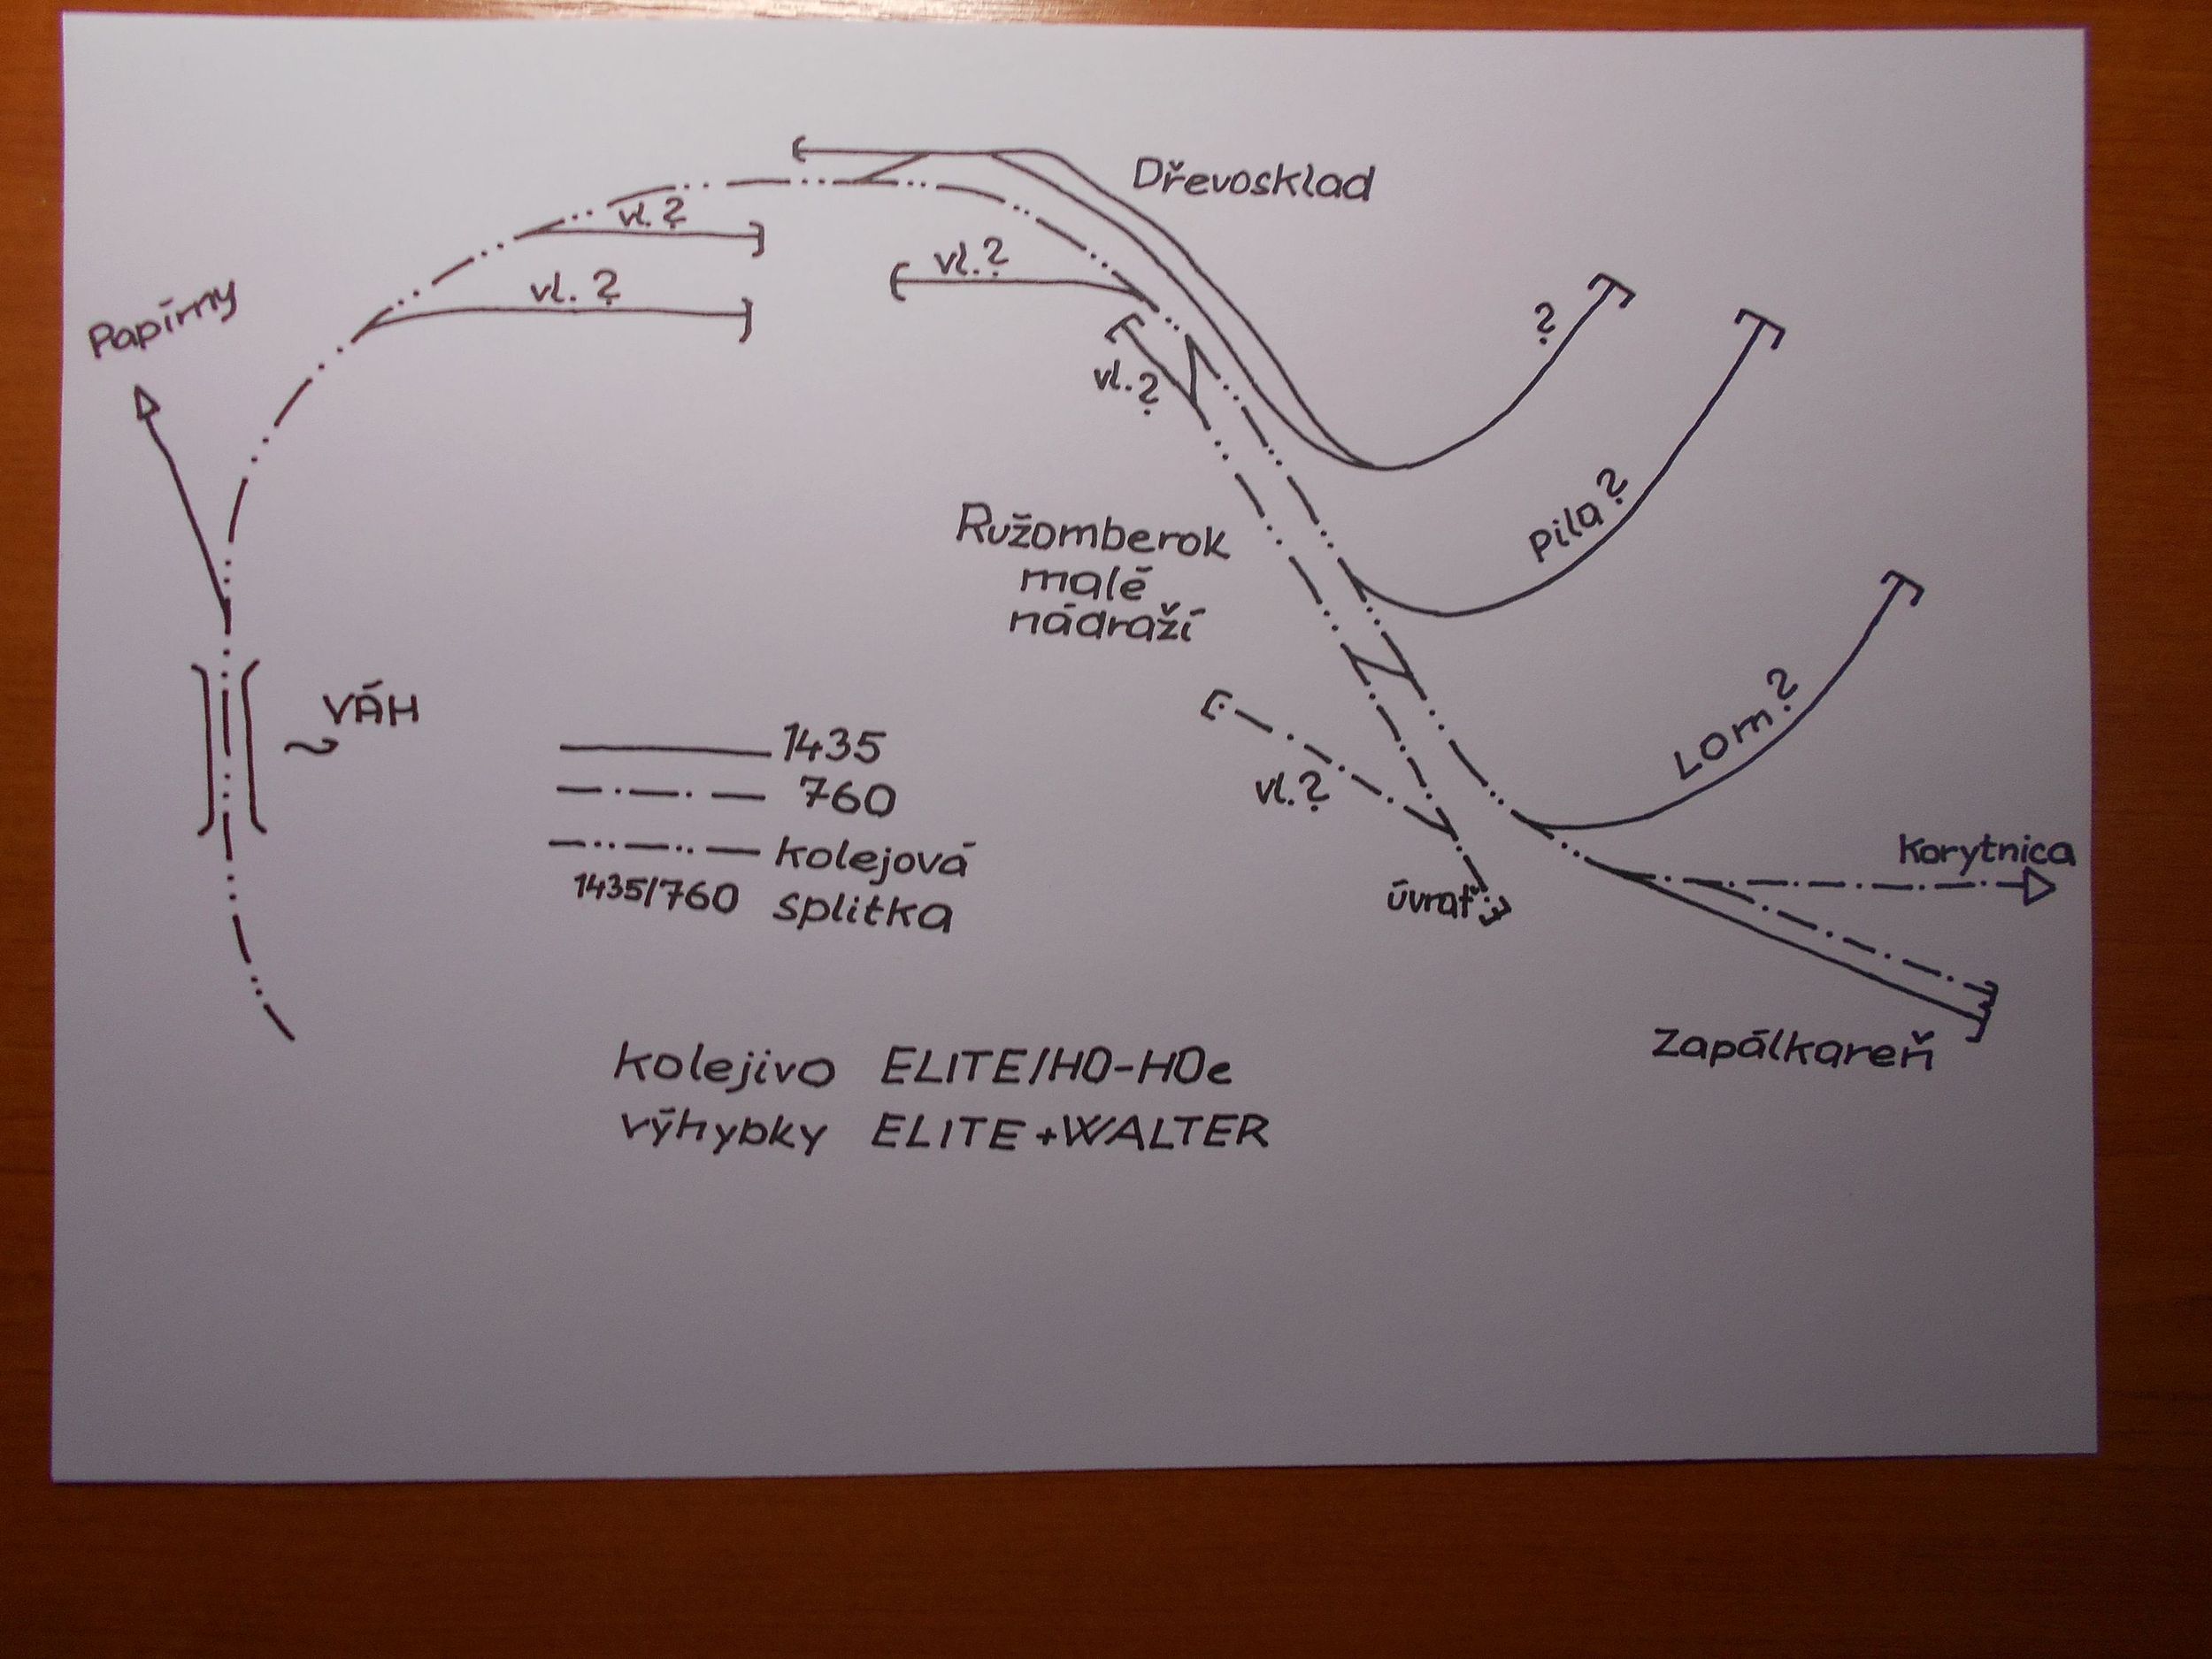 Dřevosklad
vl. ?
vl. ?
vl. ?
?
Papírny
vl. ?
Pila ?
Ružomberok
malé
nádraží
VÁH
Lom ?
1435
760
vl. ?
kolejová
1435/760 splitka
úvrať
Korytnica
Zapálkareň
kolejivo ELITE/HO-HOe
výhybky ELITE +WALTER